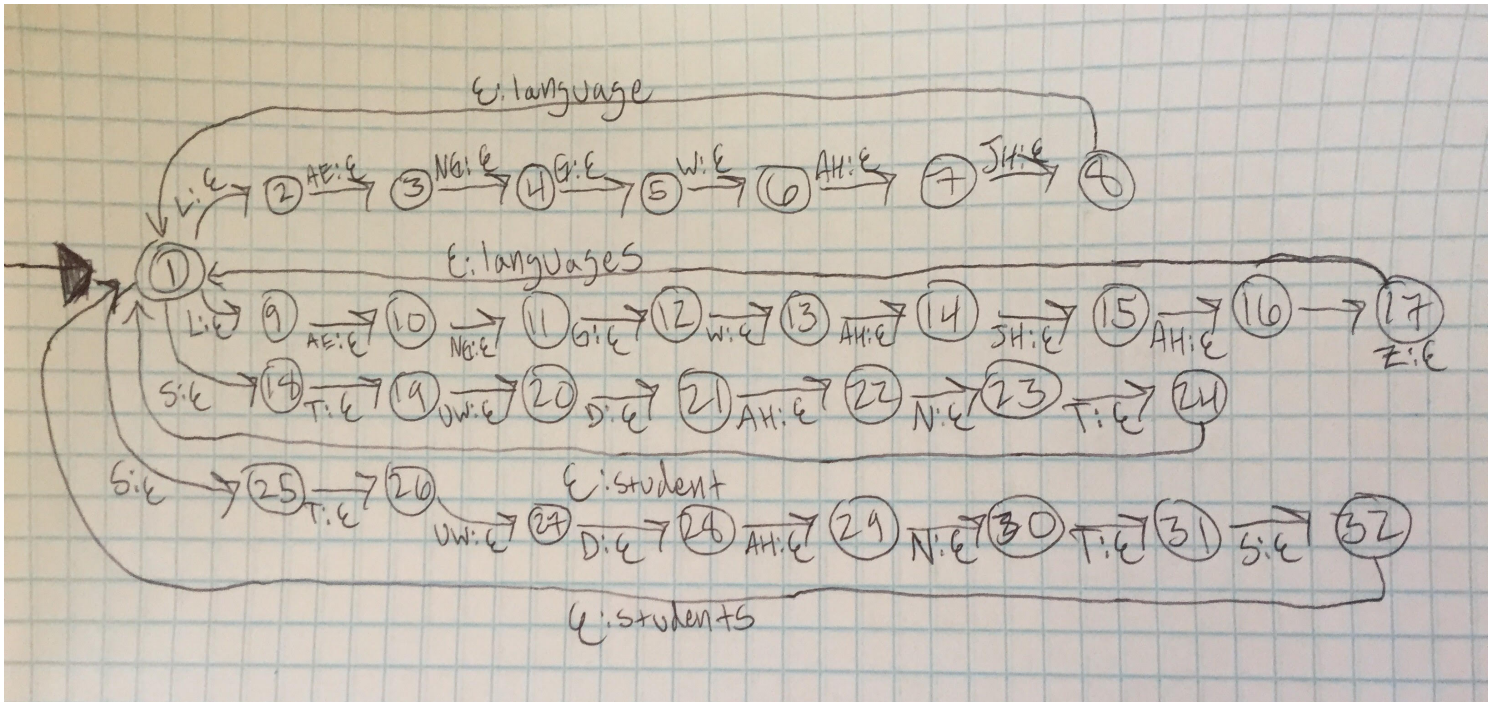 ε:language
L:ε 2 AE:ε 3 NG:ε 4 G:ε 5 W:ε 6 AH:ε 7 JH:ε 8
1 ε:languages
L:ε 9 AE:ε 10 NG:ε 11 G:ε 12 W:ε 13 AH:ε 14 JH:ε 15 AH:ε 16 17 Z:ε
S:ε 18 T:ε 19 UW:ε 20 D:ε 21 AH:ε 22 N:ε 23 T:ε 24
ε:student
S:ε 25 T:ε 26 UW:ε 27 D:ε 28 AH:ε 29 N:ε 30 T:ε 31 S:ε 32
ε:students